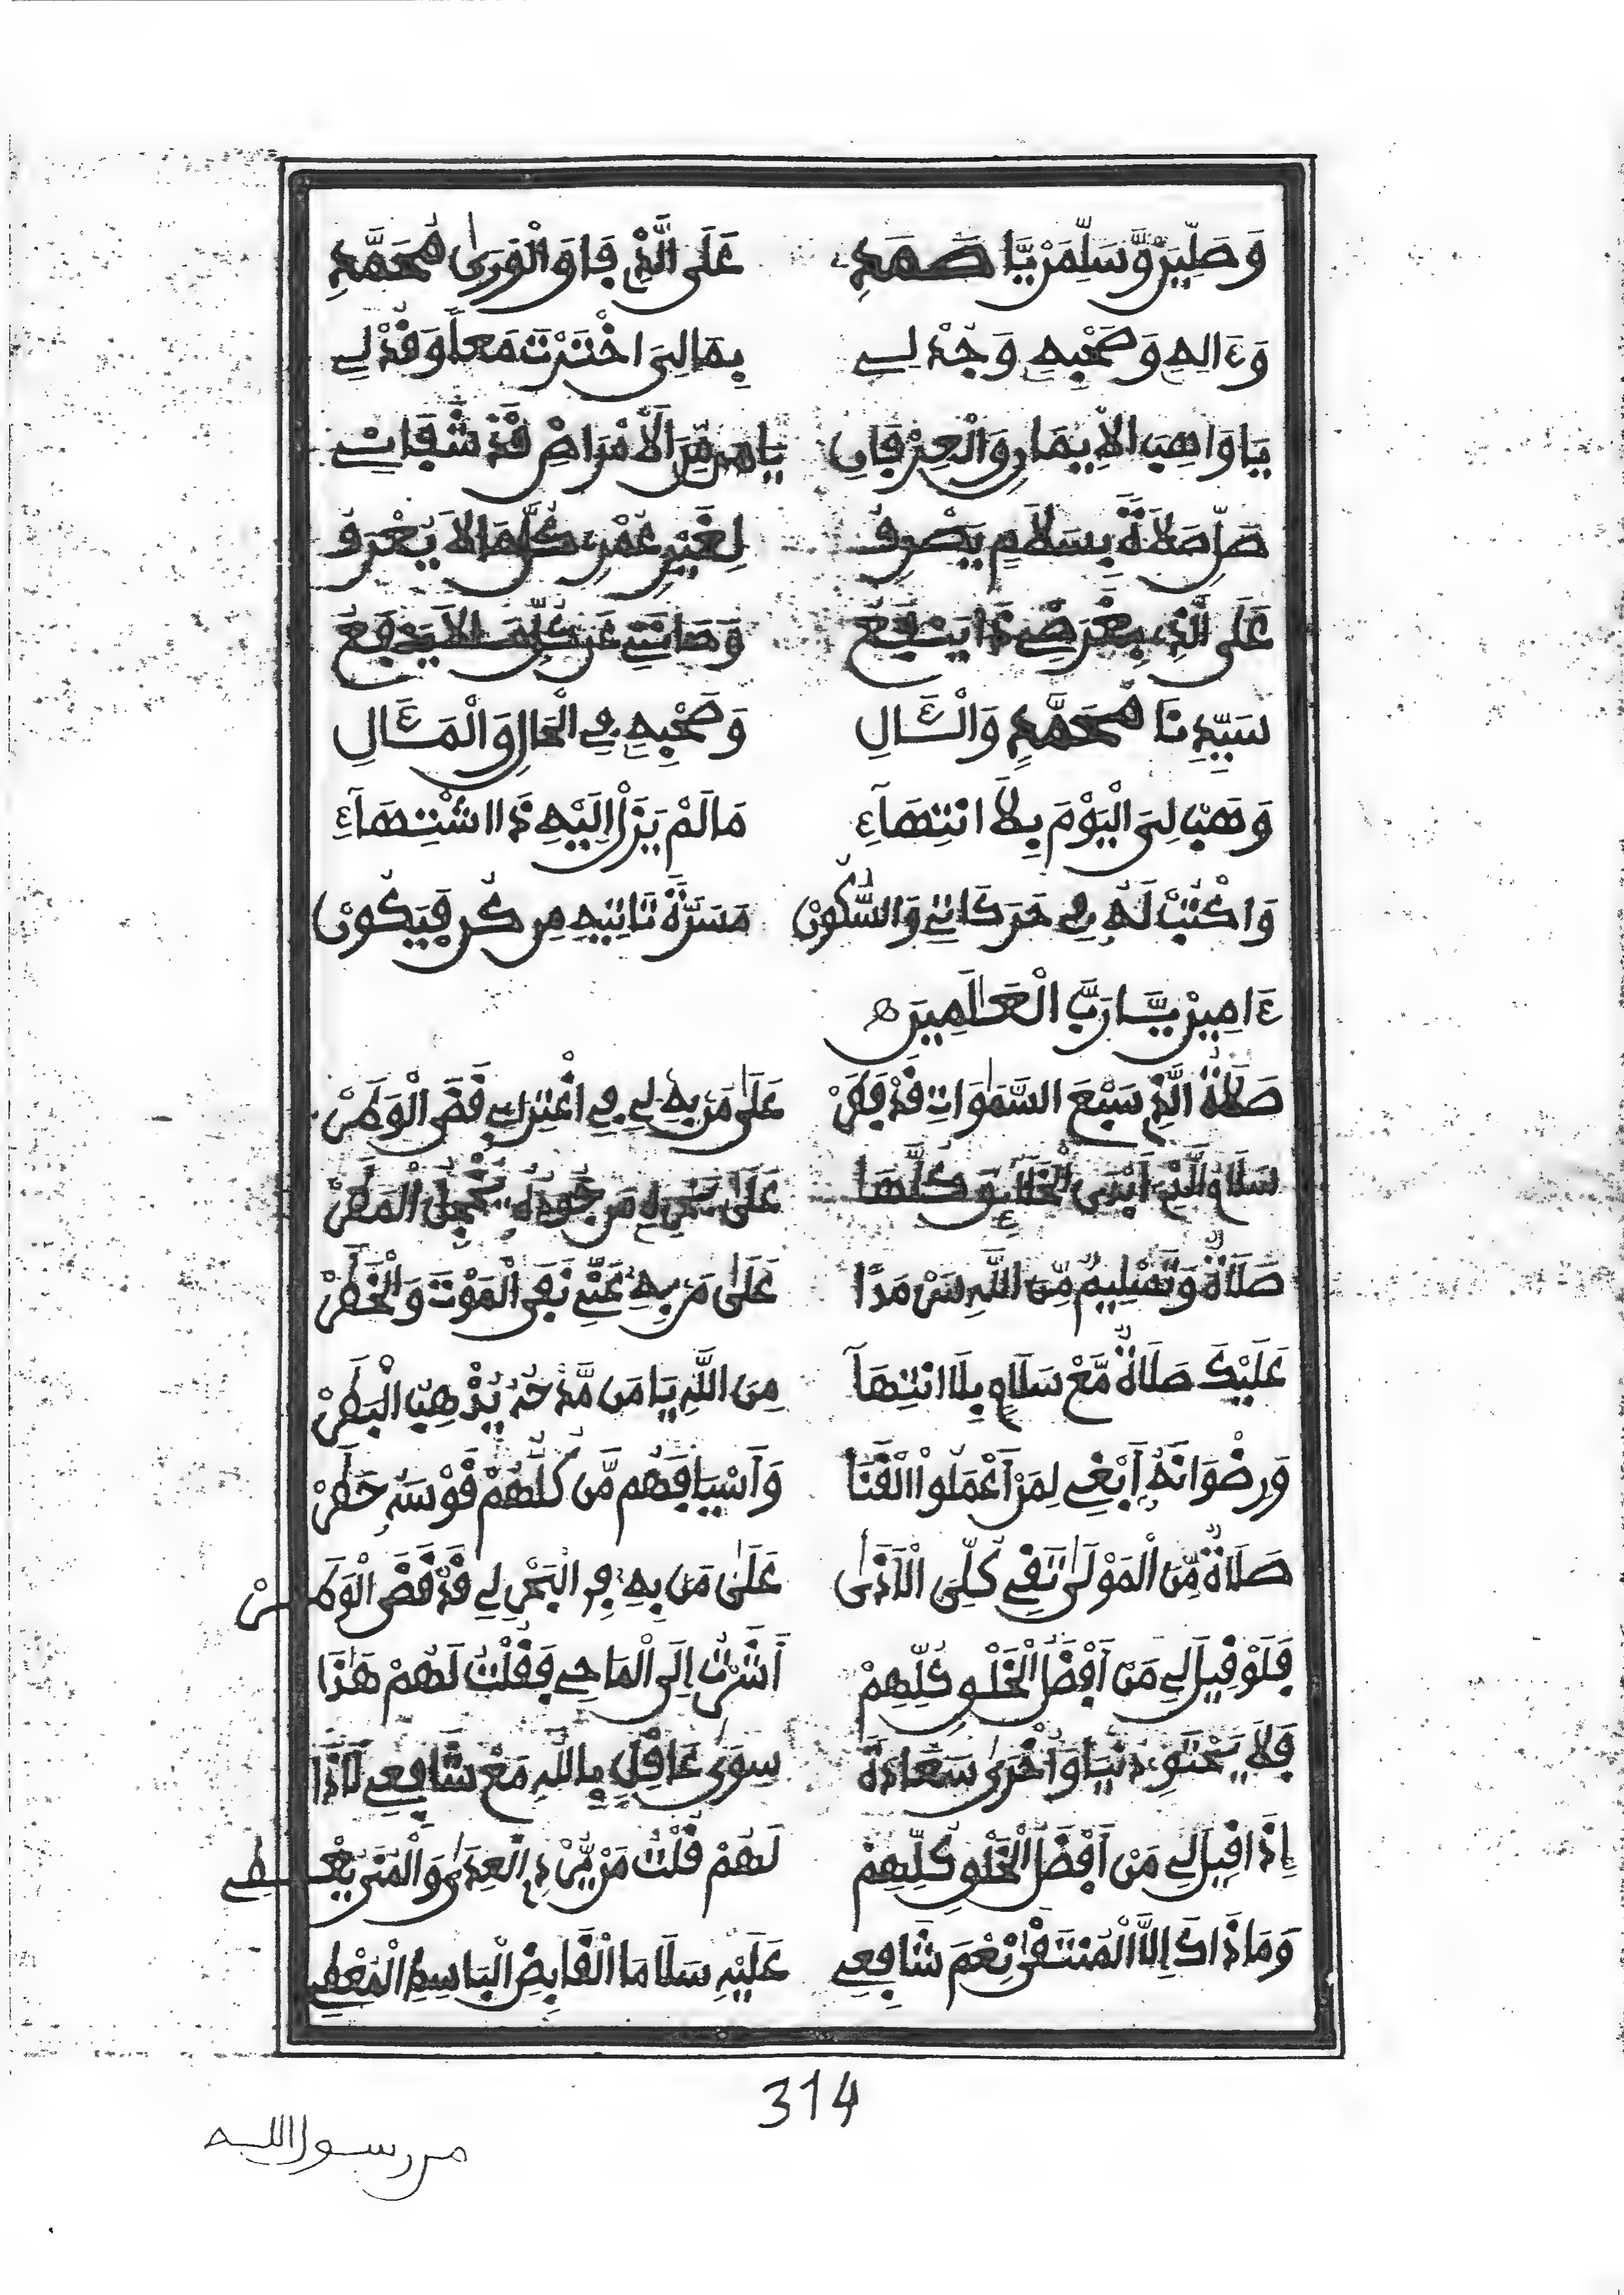 وَصَلِّيَنْ وَسَلِّمَنْ يَّا صَمَدِ عَلَى الَّذِى فَاقَ الْوَرَىٰ مُحَمَّدِ
وَءَالِهِ وَصَحْبِهِ وَجُدْ لِى بِمَا لِىَ اخْتَرْتَ مَعاً وَقُدْ لِى
يَا وَاهِبَ الْإِيمَانِ وَالْعِرْفَانِ يَا مَن مِّنَ الْأَمْرَاضِ قَدْ شَفَانِى
صَلِّ صَلَاةً بِسَلَامٍ يَصْرِفُ لِغَيْرِ عُمْرِى كُلَّ مَا لَا يُعْرَفُ
عَلَى الَّذِى بِغَرَضِى ذَا يَنْفَعُ وَصَانَنِى عَن كُلِّ مَا لَا يَدْفَعُ
سَيِّدِنَا مُحَمَّدٍ وَالْئَالِ وَصَحْبِهِ فِى الْحَالِ وَالْمَئَالِ
وَهَبْ لِىَ الْيَوْمَ بِلَا انْتِهَآءِ مَا لَمْ يَزَلْ إِلَيْهِ ذَا اشْتِهَآءِ
وَاكْتُبْ لَهُ فِى حَرَكَاتِى وَالسُّكُونْ مَسَرَّةً تَاتِيهِ مِن كُن فَيَكُونْ
ءَامِينْ يَّا رَبَّ الْعَٰلَمِينَ
صَلَاةُ الَّذِى سَبْعَ السَّمَٰوَاتِ قَدْ فَطَرْ عَلَىٰ مَنْ بِهِ لِى فِى اغْتِرَابِى قَضَى الْوَطَرْ
سَلَامُ الَّذِى أَبْدَى الْخَلَآئِقَ كُلَّهَا عَلَىٰ مَن جُودُهُ يُخْجِلُ الْمَطَرْ
صَلَاةٌ وَتَسْلِيمٌ مِّنَ اللَّهِ سَرْمَدًا عَلَىٰ مَنْ بِهِ عَنِّى نَفَى الْمَوْتَ وَالْخَطَرْ
عَلَيْكَ صَلَاةٌ مَّعْ سَلَامٍ بِلَا انْتِهَآ مِنَ اللَّهِ يَا مَن مَّدْحُهُ يُذْهِبُ الْبَطَرْ
وَرِضْوَانَهُ أَبْغِى لِمَنْ أَعْمَلُوا الْقَنَا وَأَسْيَافَهُم مَّن كُلُّهُمْ قَوْسَهُ حَطَرْ
صَلَاةٌ مِّنَ الْمَوْلَىٰ تَفِى كُلِّىَ الْأَذَىٰ عَلَىٰ مَن بِهِ فِى الْبَحْرِ لِى قَدْ قَضَى الْوَطَرْ
فَلَوْ قِيلَ لِى مَنْ أَفْضَلُ الْخَلْقِ كُلِّهِمْ أَشَرْتُ إِلَى الْمَاحِى فَقُلْتُ لَهُمْ هَٰذَا
فَلَا يَحْتَوِى دُنْيَا وَأُخْرَىٰ سَعَادَةً سِوَىٰ عَاقِلٍ بِاللَّهِ مَعْ شَافِعِى لَاذَا
إِذَا قِيلَ لِى مَنْ أَفْضَلُ الْخَلْقِ كُلِّهِمْ لَهُمْ قُلْتُ مَنْ يُّرْدِى الْعِدَىٰ وَالْمُنَىٰ يُعْطِى
وَمَا ذَاكَ إِلَّا الْمُنْتَقَىٰ نِعْمَ شَافِعِى عَلَيْهِ سَلَامَا الْقَابِضِ الْبَاسِطِ الْمُعْطِى
314
من رسول الله